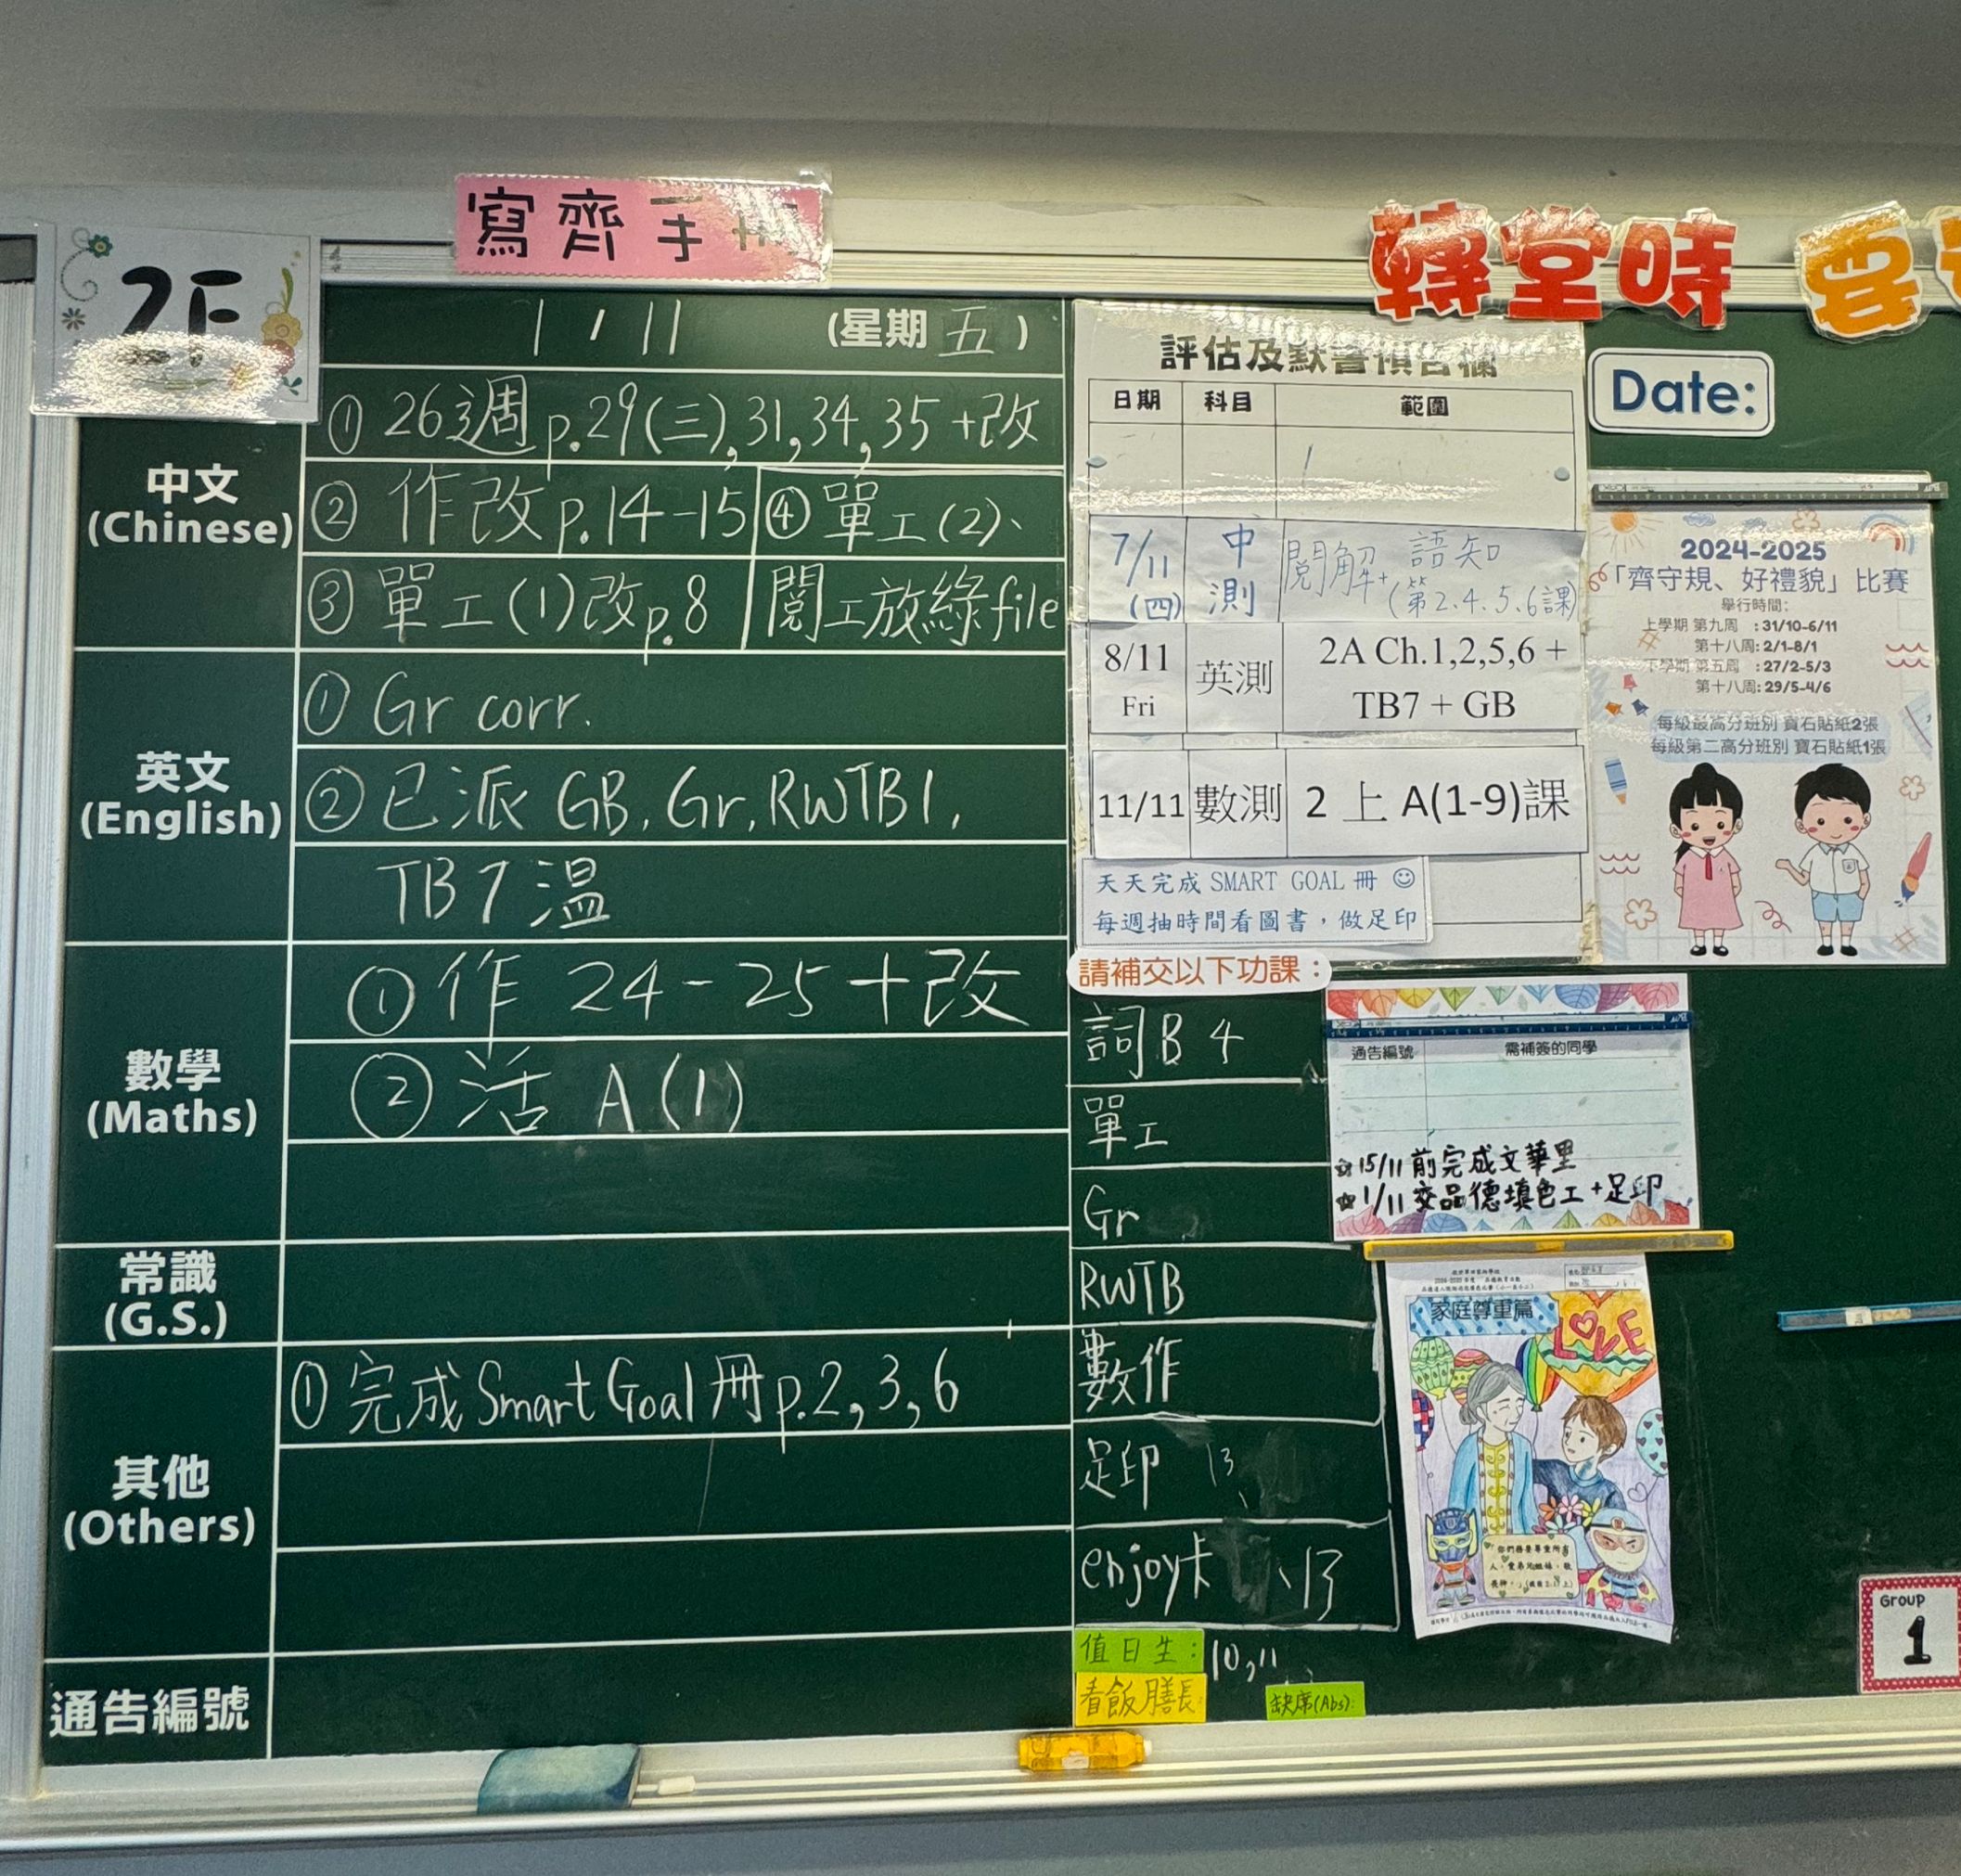 2F
寫齊手
轉堂時
1/11 (星期五)
中文
(Chinese)
① 26週 p.29(三),31,34,35+改
② 作改p.14-15
④ 單工(2)、
③ 單工(1)改p.8
閱工放綠file
英文
(English)
① Gr corr.
② 已派 GB, Gr, RWTB1,
TB7 溫
數學
(Maths)
① 作 24-25+改
② 活 A(1)
常識
(G.S.)
其他
(Others)
① 完成Smart Goal冊p.2,3,6
通告編號
評估及默書預告欄
日期 科目 範圍
7/11
(四)
中
測
閱解+ 語知
(第2.4.5.6課)
8/11
Fri
英測
2A Ch.1,2,5,6 +
TB7 + GB
11/11 數測 2 上 A(1-9)課
天天完成 SMART GOAL 冊
每週抽時間看圖書，做足印
請補交以下功課：
詞B 4
單工
Gr
RWTB
數作
足印 13
enjoy卡 、13
值日生： 10,11
看飯膳長
缺席(Abs):
Date:
2024-2025
「齊守規、好禮貌」比賽
舉行時間：
上學期 第九周 : 31/10-6/11
第十八周: 2/1-8/1
下學期 第五周 : 27/2-5/3
第十八周: 29/5-4/6
每級最高分班別 寶石貼紙2張
每級第二高分班別 寶石貼紙1張
通告編號 需補簽的同學
☆15/11前完成文華里
☆1/11交品德填色工+足印
家庭尊重篇
LOVE
GROUP
1